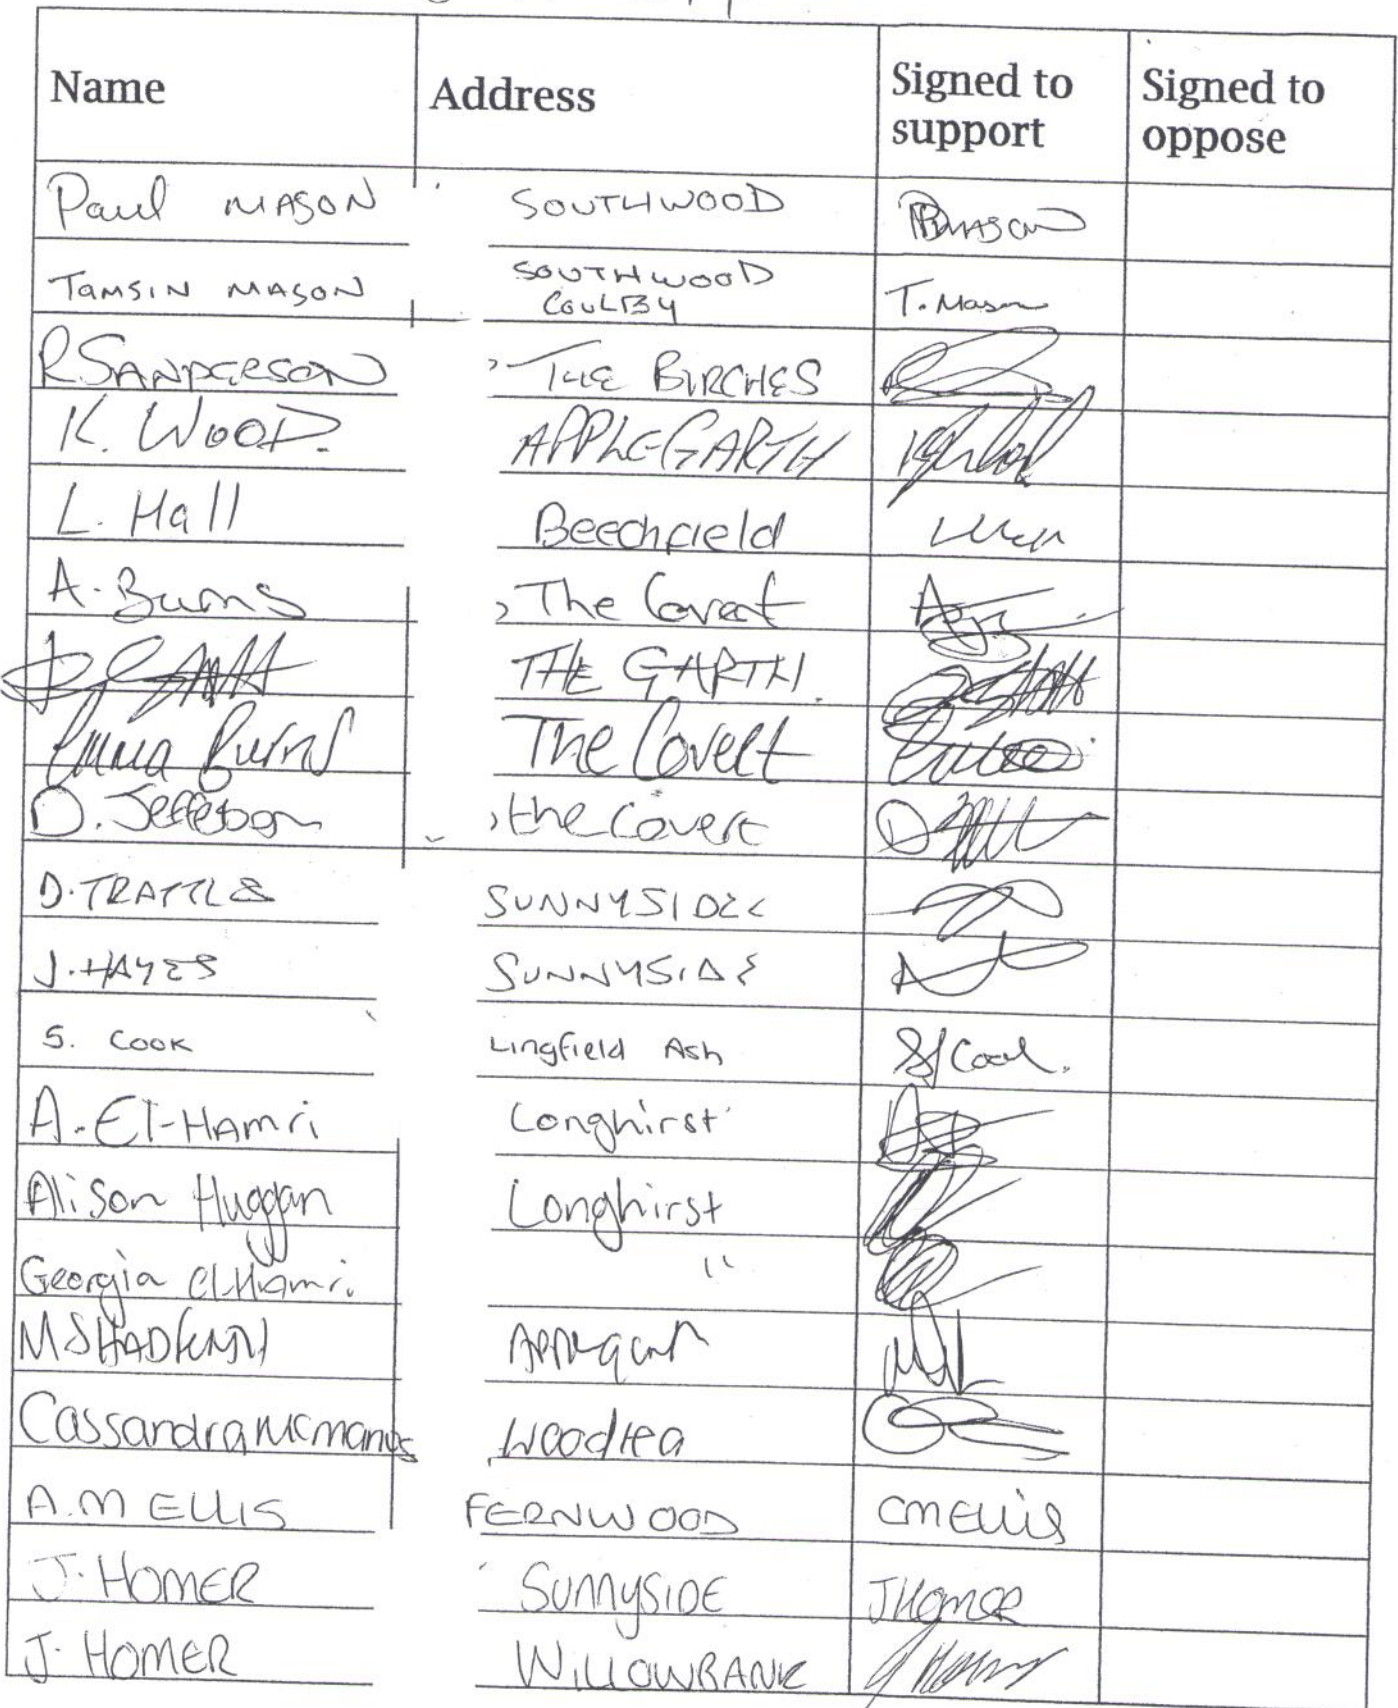 Name Address Signed to support Signed to oppose
Paul MASON SOUTHWOOD PMASON
TAMSIN MASON SOUTHWOOD COULBY T. Mason
R SANDERSON THE BIRCHES
K. WOOD. APPLEGARTH
L. Hall Beechfield
A. Burns The Covert
THE GARTH.
Emma Burns The Covert
D. Jefferson the Covert
D. TRATTLE SUNNYSIDE
J. HAYES SUNNYSIDE
S. COOK Lingfield Ash S Cook.
A. El-Hamri Longhirst
Alison Huggan Longhirst
Georgia El-Hamri. "
Cassandra McManus Woodlea
A. M ELLIS FERNWOOD CM Ellis
J. HOMER SUNNYSIDE J Homer
J. HOMER WILLOWBANK J Homer